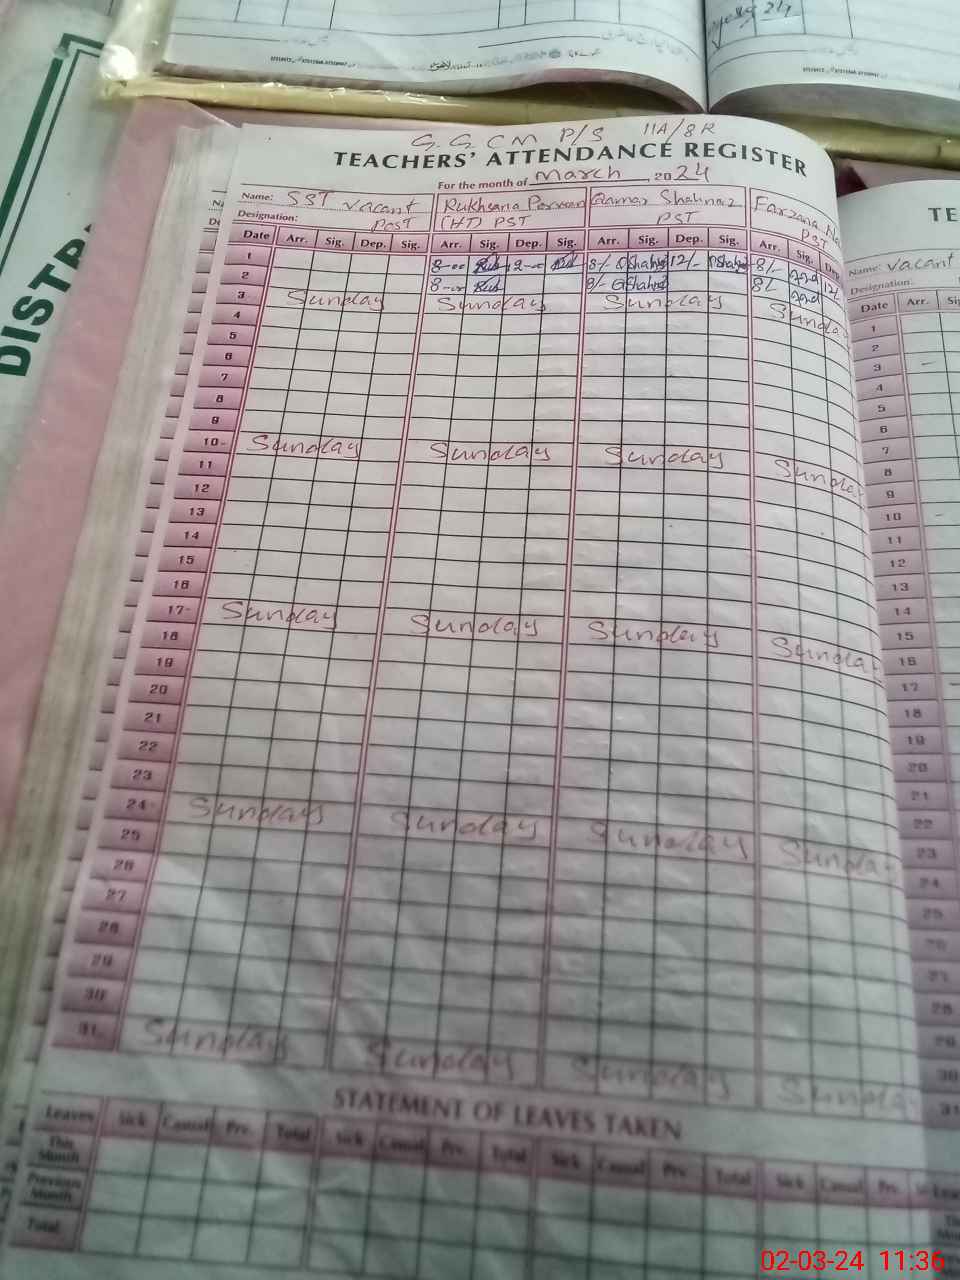 DISTR
G.G.CM P/S 11A/8R
TEACHERS' ATTENDANCE REGISTER
For the month of March, 2024
Name: SST vacant Rukhsana Parveen Qamar Shahnaz Farzana
Designation: Post (HT) PST PST PST
Date Arr. Sig. Dep. Sig. Arr. Sig. Dep. Sig. Arr. Sig. Dep. Sig. Arr. Sig. Dep.
1 8-00 12-00 8/- QShahnaz 12/- QShahnaz 8/- 12/-
2 8-00 8/- QShahnaz 8/-
3 Sunday Sunday Sunday Sunday
4
5
6
7
8
9
10 Sunday Sunday Sunday Sunday
11
12
13
14
15
16
17 Sunday Sunday Sunday Sunday
18
19
20
21
22
23
24 Sunday Sunday Sunday Sunday
25
26
27
28
29
30
31 Sunday Sunday Sunday Sunday
STATEMENT OF LEAVES TAKEN
Leaves Sick Casual Prv. Total Sick Casual Prv. Total Sick Casual Prv. Total Sick Casual Prv.
This Month
Previous Month
Total
TE
Name: Vacant
Designation:
Date Arr. Sig
1
2
3
4
5
6
7
8
9
10
11
12
13
14
15
16
17
18
19
20
21
22
23
24
25
26
27
28
29
30
31
02-03-24 11:36